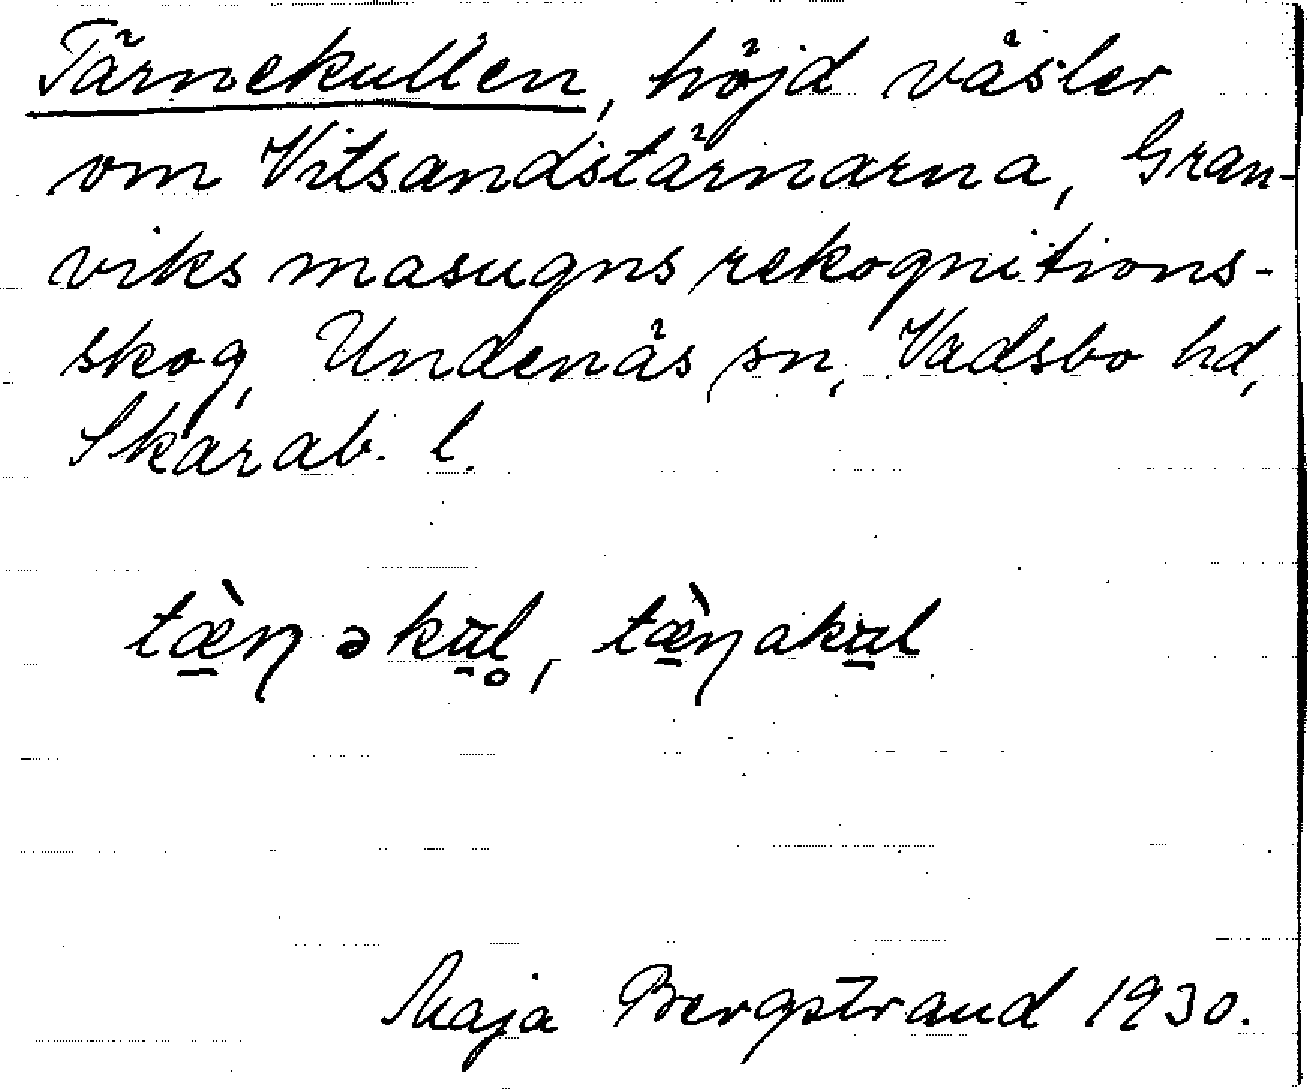 Tärnekullen, höjd väster
om Vitsandstärnarna, Gran-
viks masugns rekognitions-
skog, Undenäs sn, Vadsbo hd,
Skarab. l.
Maja Bergstrand 1930.